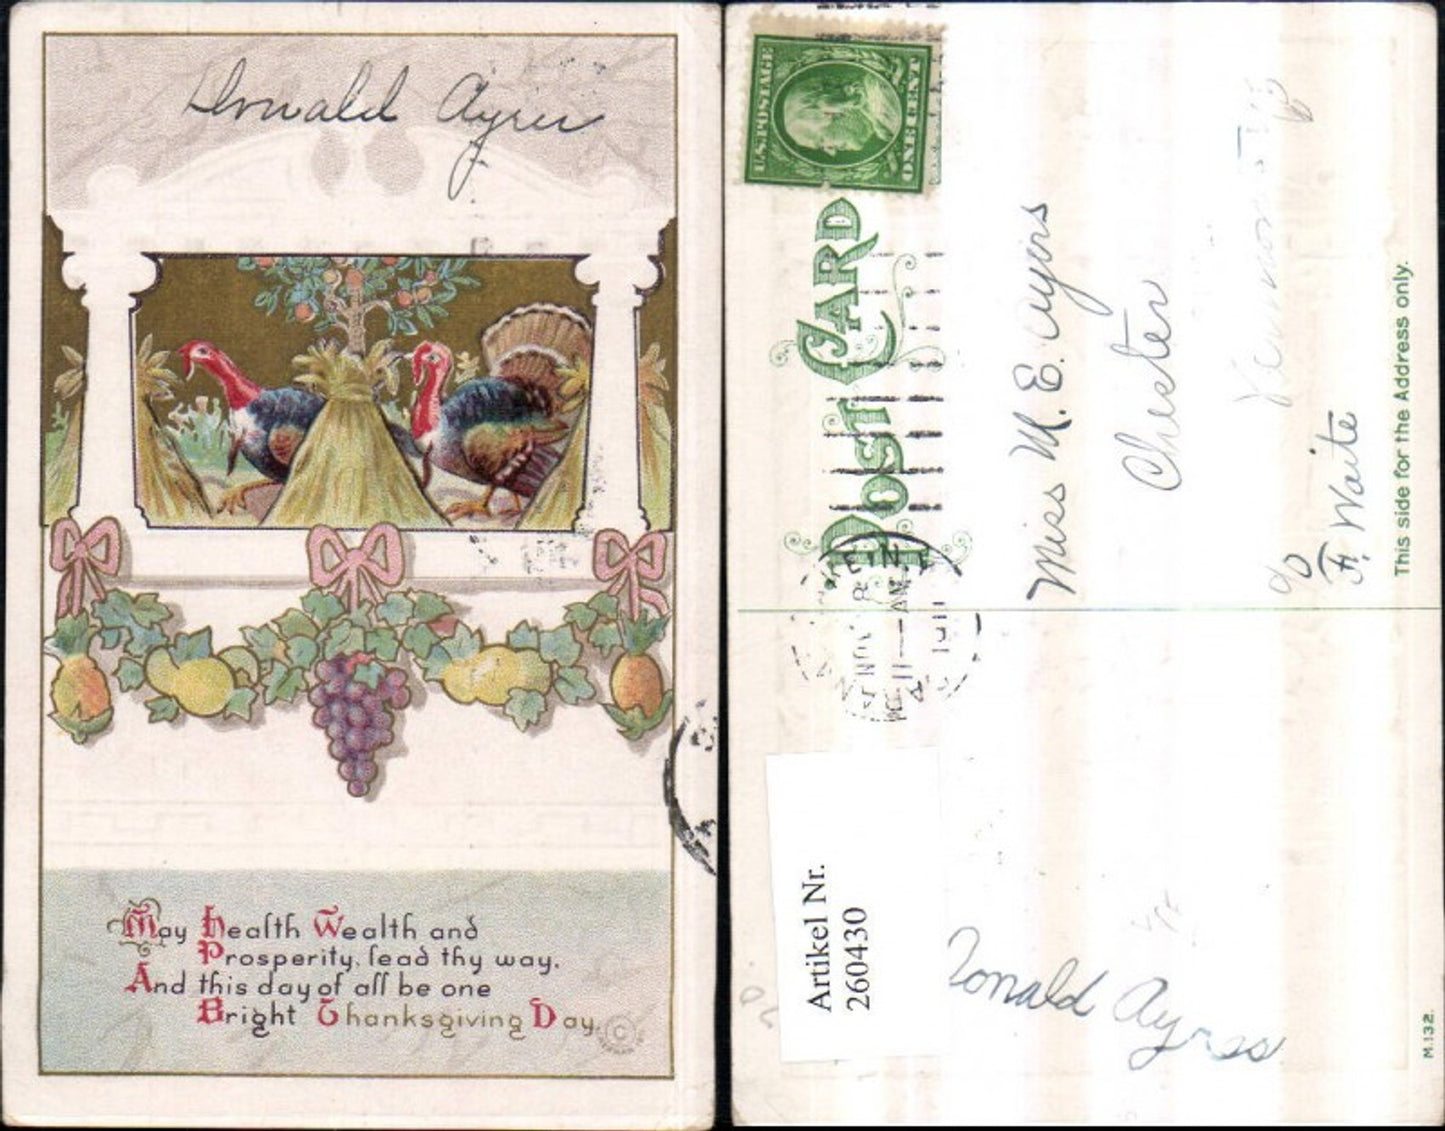 Donald Ayers
May Health Wealth and
Prosperity, lead thy way,
And this day of all be one
Bright Thanksgiving Day.
©
U.S. POSTAGE
ONE CENT
POST CARD
NOV 28
11 — AM
1911
Miss M. E. Ayers
Chester
Vermont
c/o
F. Waite
This side for the Address only.
Artikel Nr.
260430
Donald Ayrss
M.132.